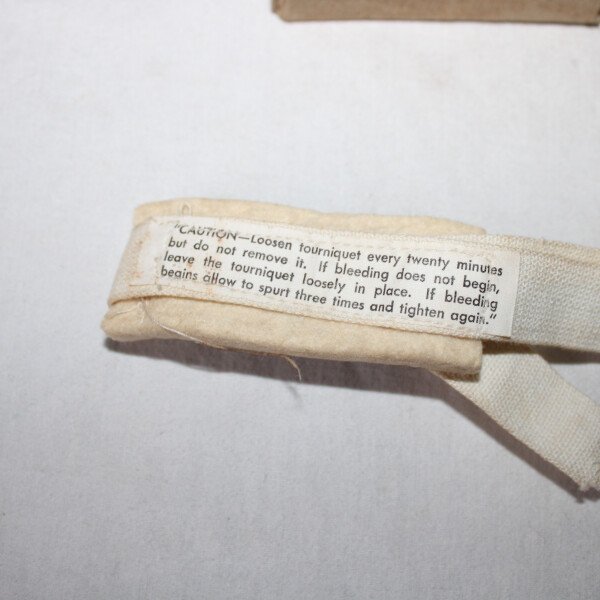 "CAUTION—Loosen tourniquet every twenty minutes
but do not remove it. If bleeding does not begin,
leave the tourniquet loosely in place. If bleeding
begins allow to spurt three times and tighten again."